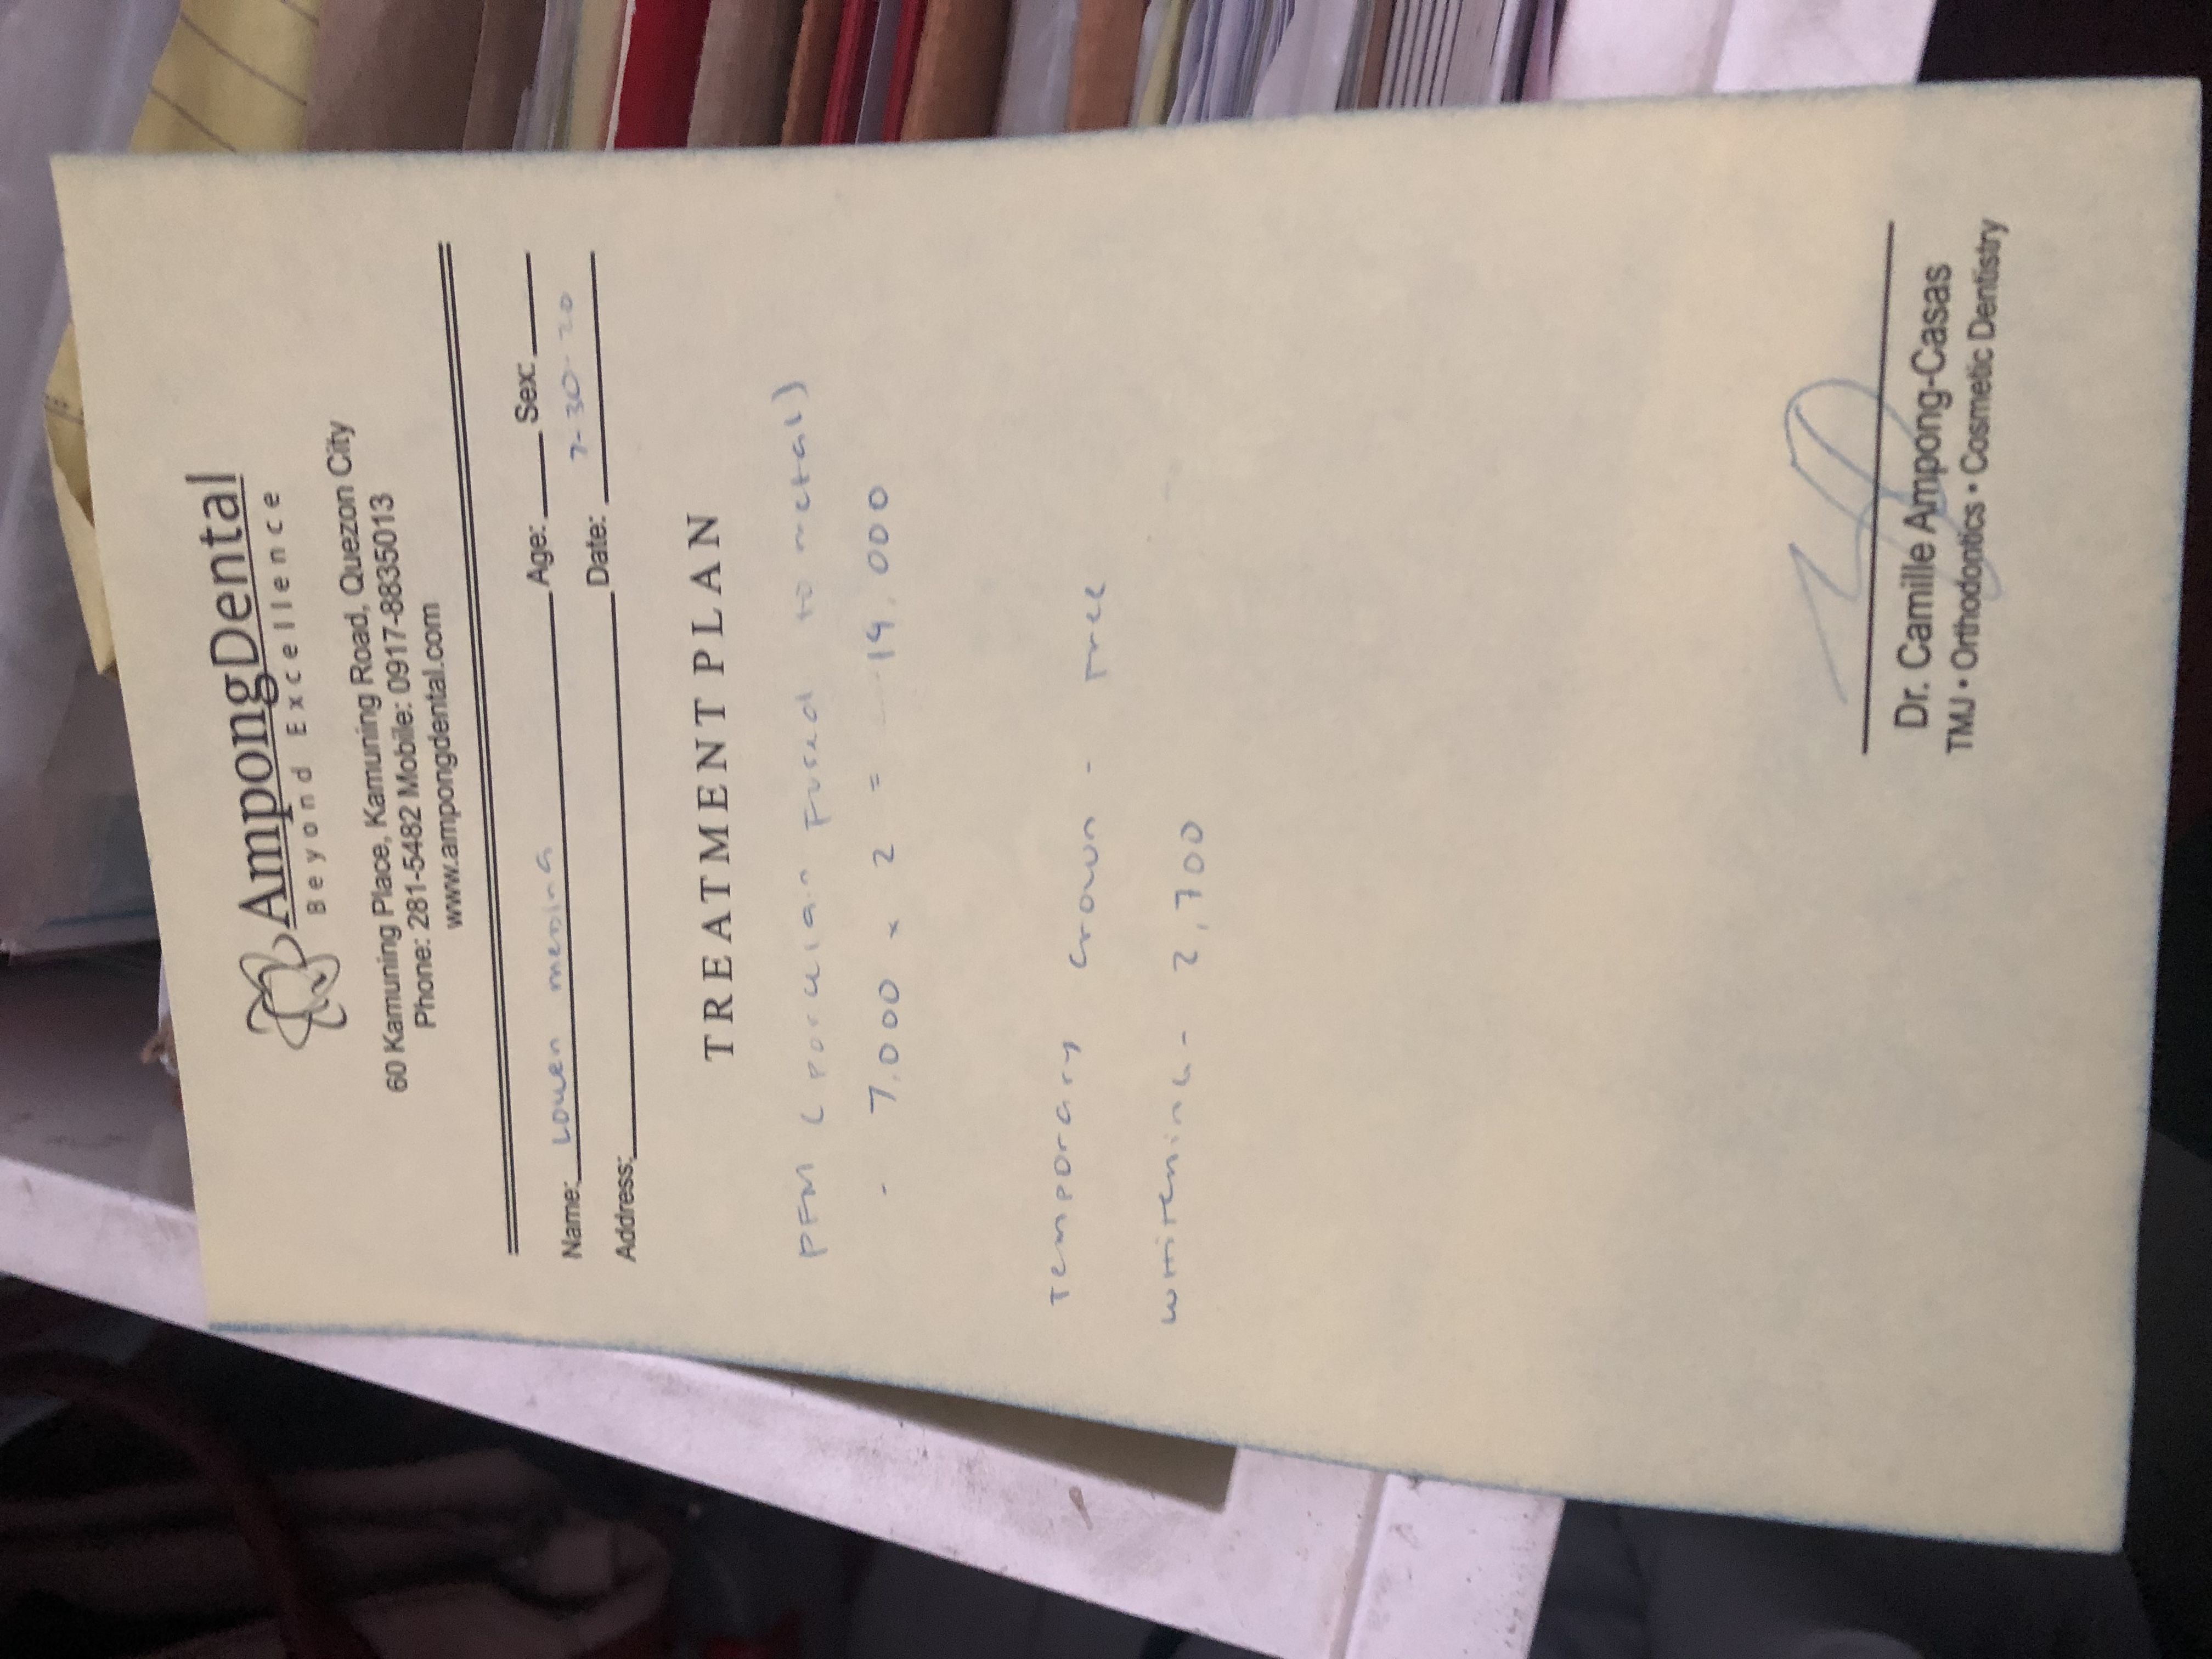 AmpongDental
Beyond Excellence
60 Kamuning Place, Kamuning Road, Quezon City
Phone: 281-5482 Mobile: 0917-8835013
www.ampongdental.com
Name: Lowen Medina Age: Sex:
Address: Date: 7-30-20
TREATMENT PLAN
PFM (Porcelain Fused to metal)
- 7,000 x 2 = 14,000
Temporary Crown - Free
Whitening - 2,700
Dr. Camille Ampong-Casas
TMJ • Orthodontics • Cosmetic Dentistry